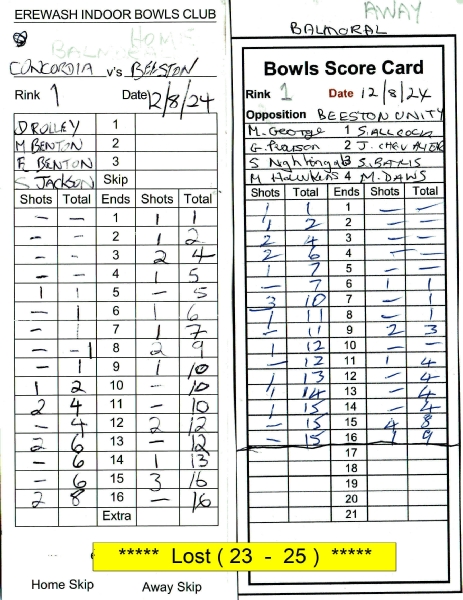 EREWASH INDOOR BOWLS CLUB
HOME
BALMORAL
CONCORDIA v's BEESTON
Rink 1 Date 12/8/24
D ROLLEY 1
M BENTON 2
F BENTON 3
S JACKSON Skip
Shots Total Ends Shots Total
– – 1 1 1
– – 2 1 2
– – 3 2 4
– – 4 1 5
1 1 5 – 5
– 1 6 1 6
– 1 7 1 7
– 1 8 2 9
– 1 9 1 10
1 2 10 – 10
2 4 11 – 10
– 4 12 2 12
2 6 13 – 12
– 6 14 1 13
– 6 15 3 16
2 8 16 – 16
Extra
Home Skip Away Skip
AWAY
BALMORAL
Bowls Score Card
Rink 1 Date 12/8/24
Opposition BEESTON UNITY
M. George 1 S. ALLCOCK
G. Pearson 2 J. CHEVALIER
S Nightingale 3 S. BATES
M Hawkins 4 M. DAWS
Shots Total Ends Shots Total
1 1 1 – –
1 2 2 – –
2 4 3 – –
2 6 4 – –
1 7 5 – –
– 7 6 1 1
3 10 7 – 1
1 11 8 – 1
– 11 9 2 3
1 12 10 – –
– 12 11 1 4
1 13 12 – 4
1 14 13 – 4
1 15 14 – 4
– 15 15 4 8
– 15 16 1 9
17
18
19
20
21
***** Lost ( 23 - 25 ) *****